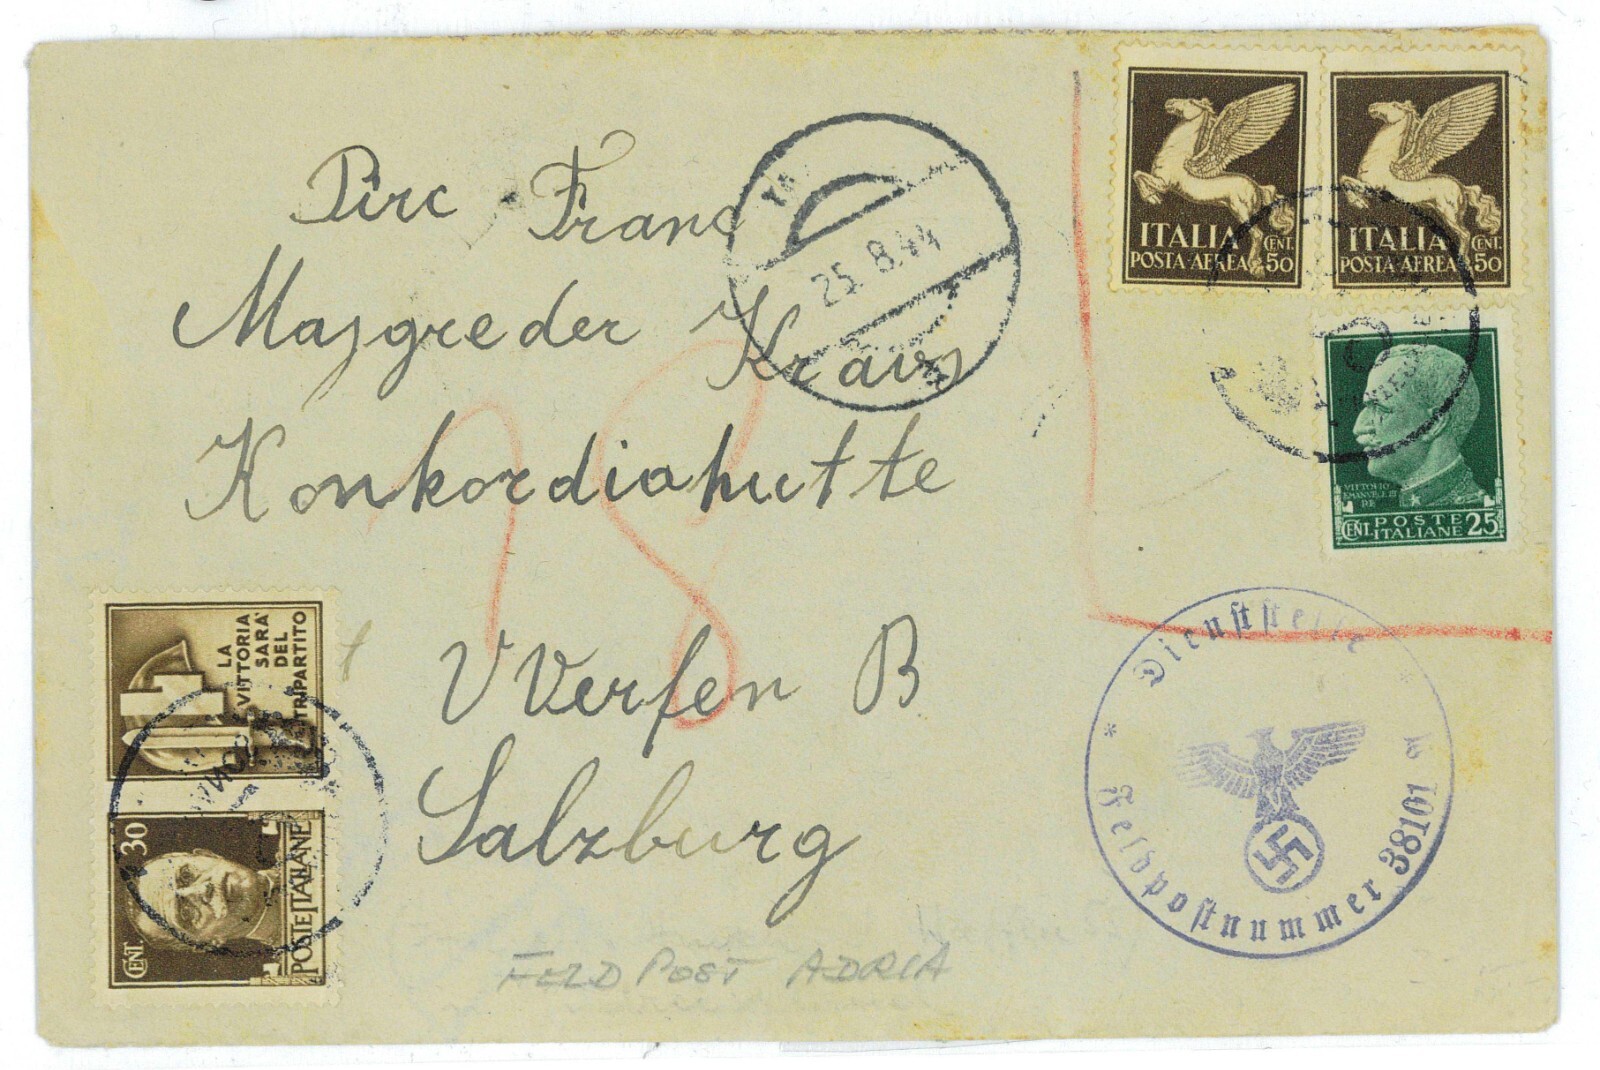 Pirc Franc
Majgreder Kravs
Konkordiahutte
VVerfen B
Salzburg
25.8.44
ITALIA
CENT.
POSTA AEREA 50
ITALIA
CENT.
POSTA AEREA 50
VITTORIO
EMANUELE III
RE
POSTE
CENT. ITALIANE 25
LA
VITTORIA
SARA'
DEL
TRIPARTITO
CENT. 30
POSTE ITALIANE
18
Dienststelle
* Feldpostnummer 38101 A
FELDPOST ADRIA